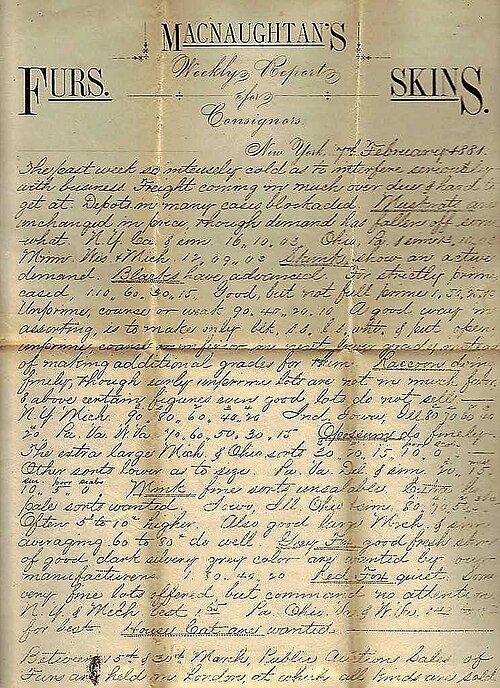 MACNAUGHTAN'S
FURS. Weekly Report SKINS.
for
Consignors.
New York, 7th February 1881.
The past week so intensely cold as to interfere seriously
with business. Freight coming in, much over due & hard to
get at. Depots in many cases blockaded. Muskrats are
unchanged in price, though demand has fallen off some
what. N.Y. Ea. & sim. 16, 10, 03, Ohio, Pa. & sim.
Minn. Wis. & Mich. 12, 09, 02 Skunks show an active
demand. Blacks have advanced. For strictly prime
cased, 1.10, 60, 30, 15. Good, but not full prime 1,
Unprime, coarse or weak, 90, 40, 20, 10. A good way in
assorting, is to make only blk, s.s., l.s, wht. & put open
unprime, coarse in
of making additional grades for them. Raccoon doing
finely, though early unprime lots are not in much favor
& above certain figures even good lots do not sell.
N.Y. Mich. 90, 80, 60, 40, 20 Ind. Iowa, Ill 80 70
20 Pa. Va. W.Va. 70, 60, 50, 30, 15 Opossums do finely
The extra large Mich. & Ohio sorts 30, 20, 15, 10,
Other sorts lower as to size. Pa. Va. Del & sim. 20, 15
10, 5, 0, Mink fine sorts unsalable.
pale sorts wanted. Iowa, Ill. Ohio & sim. 80, 70,
Often 5 to 10 higher. Also good large Mich. & sim
averaging 60 to 80 do well. Grey Fox good fresh
of good dark silvery grey color are wanted by our
manufacturers. 1, 80, 40, 20 Red Fox quiet. Some
very fine lots offered, but command no attention
N.Y. & Mich. East Pa. Ohio, & W.Va.
for best. House Cat are wanted.
Between 15th & 30th March, Public Auction Sales of
Furs are held in London, at which all kinds are sold